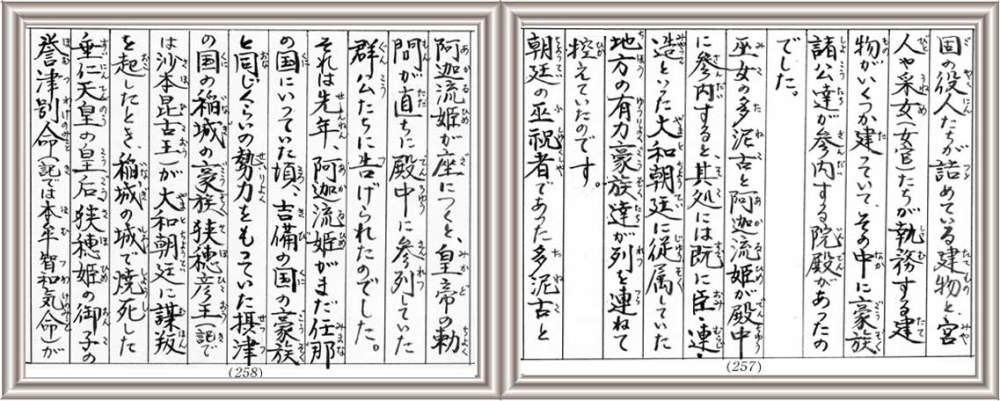 国の役人たちが詰めている建物と、宮
人や采女(女官)たちが執務する建
物がいくつか建っていて、その中に豪族、
諸公達が参内する院殿があったの
でした。
巫女の多泥古と阿迦流姫が殿中
に参内すると、其処には既に臣・連・
造といった大和朝廷に従属していた
地方の有力豪族達が列を連ねて
控えていたのです。
朝廷の巫祝者であった多泥古と
(257)
阿迦流姫が座につくと、皇帝の勅
問が直ちに殿中に参列していた
群公たちに告げられたのでした。
それは先年、阿迦流姫がまだ任那
の国にいっていた頃、吉備の国の豪族
と同じくらいの勢力をもっていた摂津
の国の稲城の豪族、狭穂彦王(記で
は沙本毘古王)が大和朝廷に謀叛
を起したとき、稲城の城で焼死した
垂仁天皇の皇后狭穂姫の御子の
誉津別命(記では本牟智和気命)が
(258)